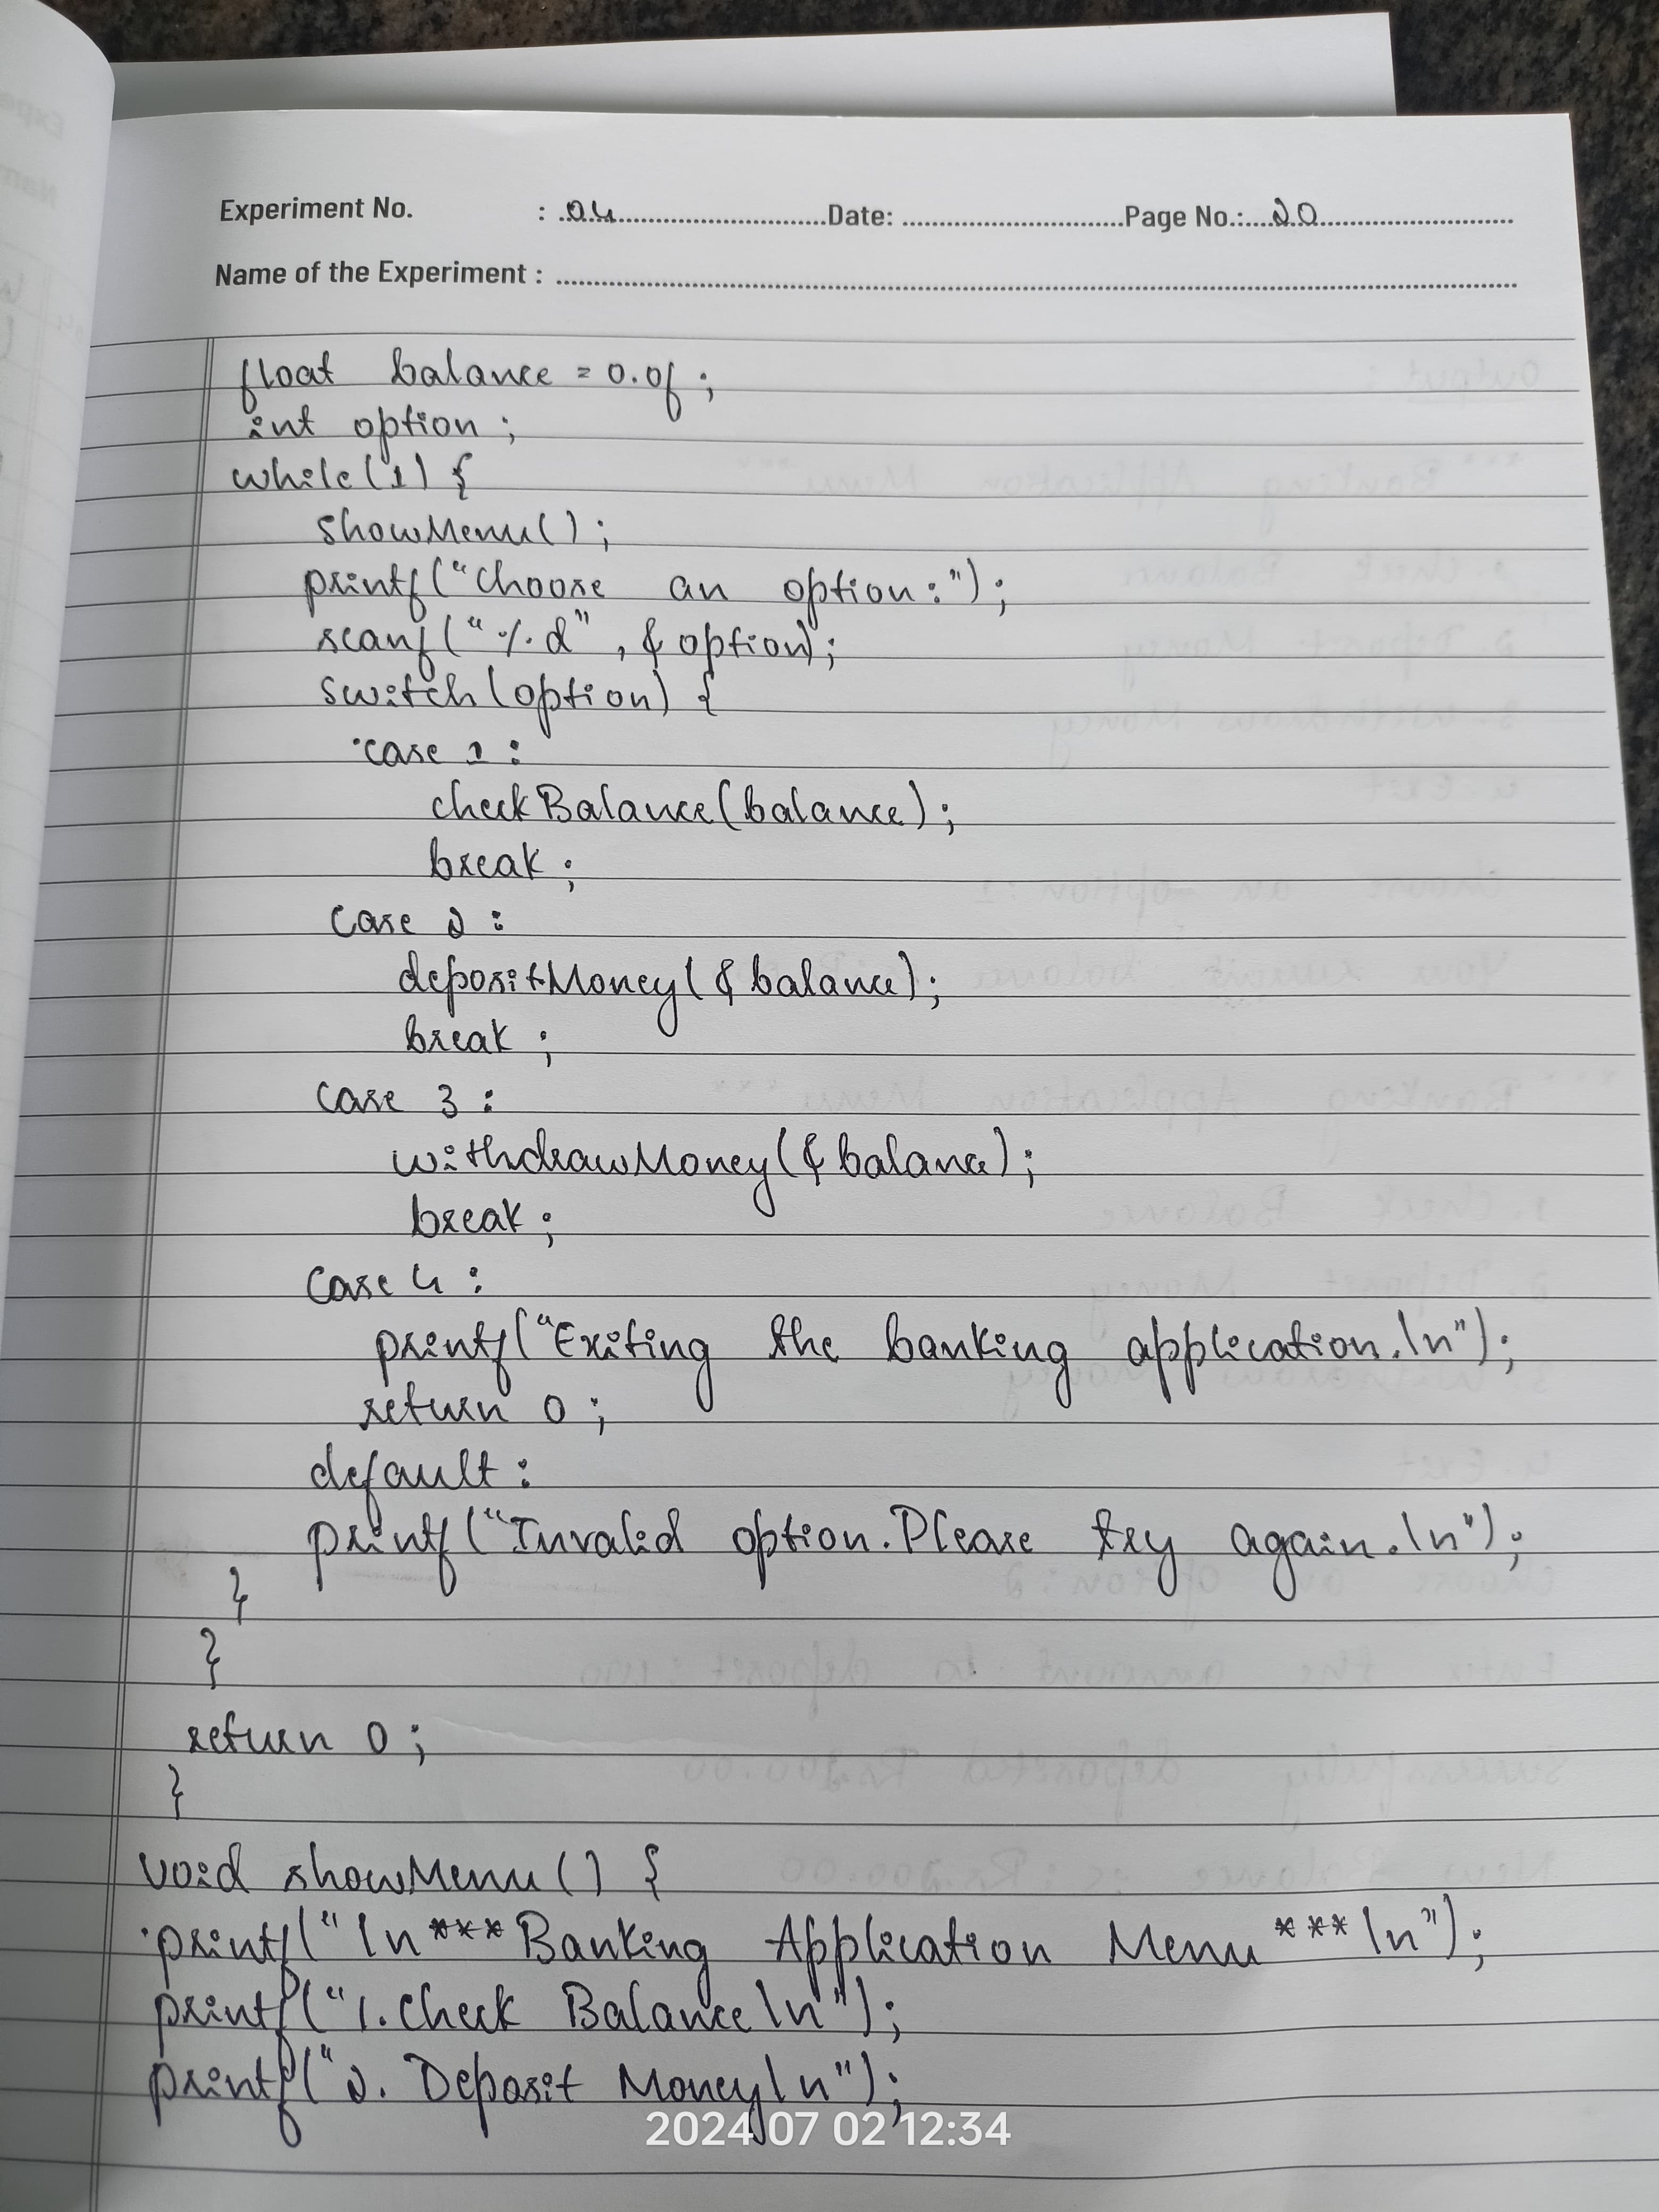 Experiment No. : 04 Date: Page No.: 20
Name of the Experiment :
float balance = 0.0f;
int option;
while(1) {
showMenu();
printf("Choose an option:");
scanf("%d", &option);
switch(option) {
case 1:
checkBalance(balance);
break;
case 2:
depositMoney(&balance);
break;
case 3:
withdrawMoney(&balance);
break;
case 4:
printf("Exiting the banking application.\n");
return 0;
default:
printf("Invalid option.Please try again.\n");
}
}
return 0;
}
void showMenu() {
printf("\n***Banking Application Menu***\n");
printf("1.Check Balance\n");
printf("2. Deposit Money\n");
2024 07 02 12:34